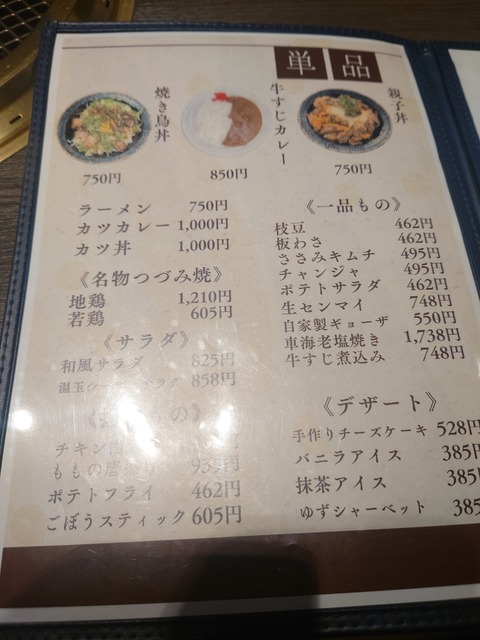 単品
焼き鳥丼
750円
牛すじカレー
850円
親子丼
750円
ラーメン 750円
カツカレー 1,000円
カツ丼 1,000円
《名物つづみ焼》
地鶏 1,210円
若鶏 605円
《サラダ》
和風サラダ 825円
温玉シーザーサラダ 858円
の》
チキン
ももの唐揚げ
ポテトフライ 462円
ごぼうスティック 605円
《一品もの》
枝豆 462円
板わさ 462円
ささみキムチ 495円
チャンジャ 495円
ポテトサラダ 462円
生センマイ 748円
自家製ギョーザ 550円
車海老塩焼き 1,738円
牛すじ煮込み 748円
《デザート》
手作りチーズケーキ 528円
バニラアイス 385円
抹茶アイス 385
ゆずシャーベット 385